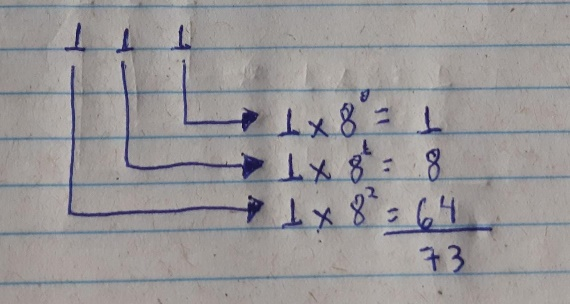 1 1 1
1 x 8⁰ = 1
1 x 8¹ = 8
1 x 8² = 64
73